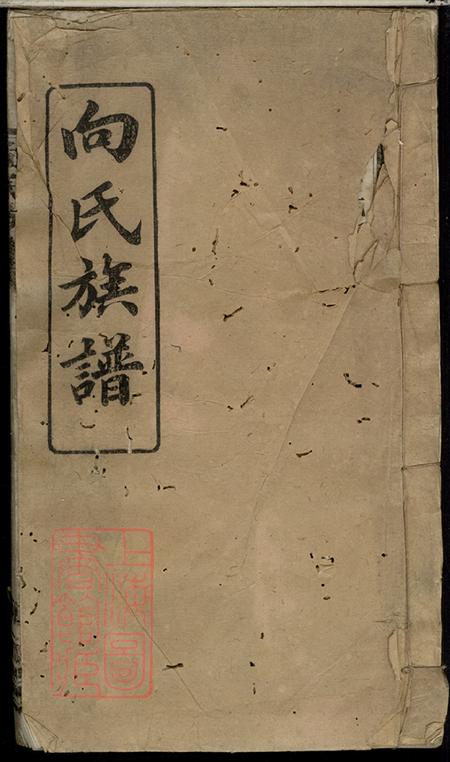 向氏族譜
上海圖
書館藏